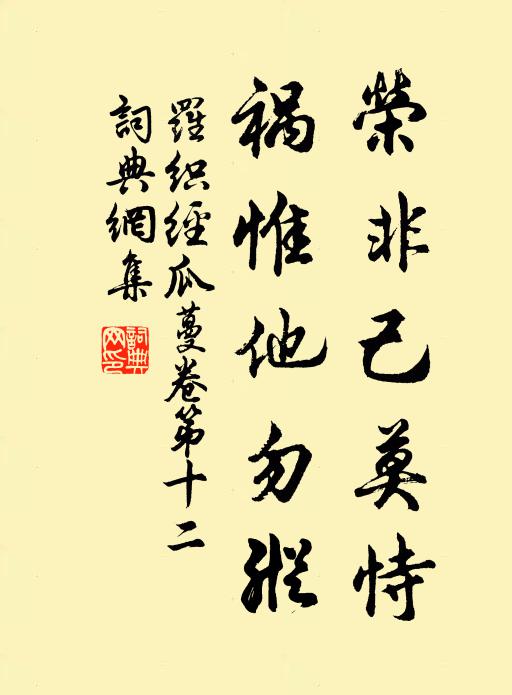 榮非己莫恃
禍惟他勿縱
羅織經瓜蔓卷第十二
詞典網集
詞典
网印